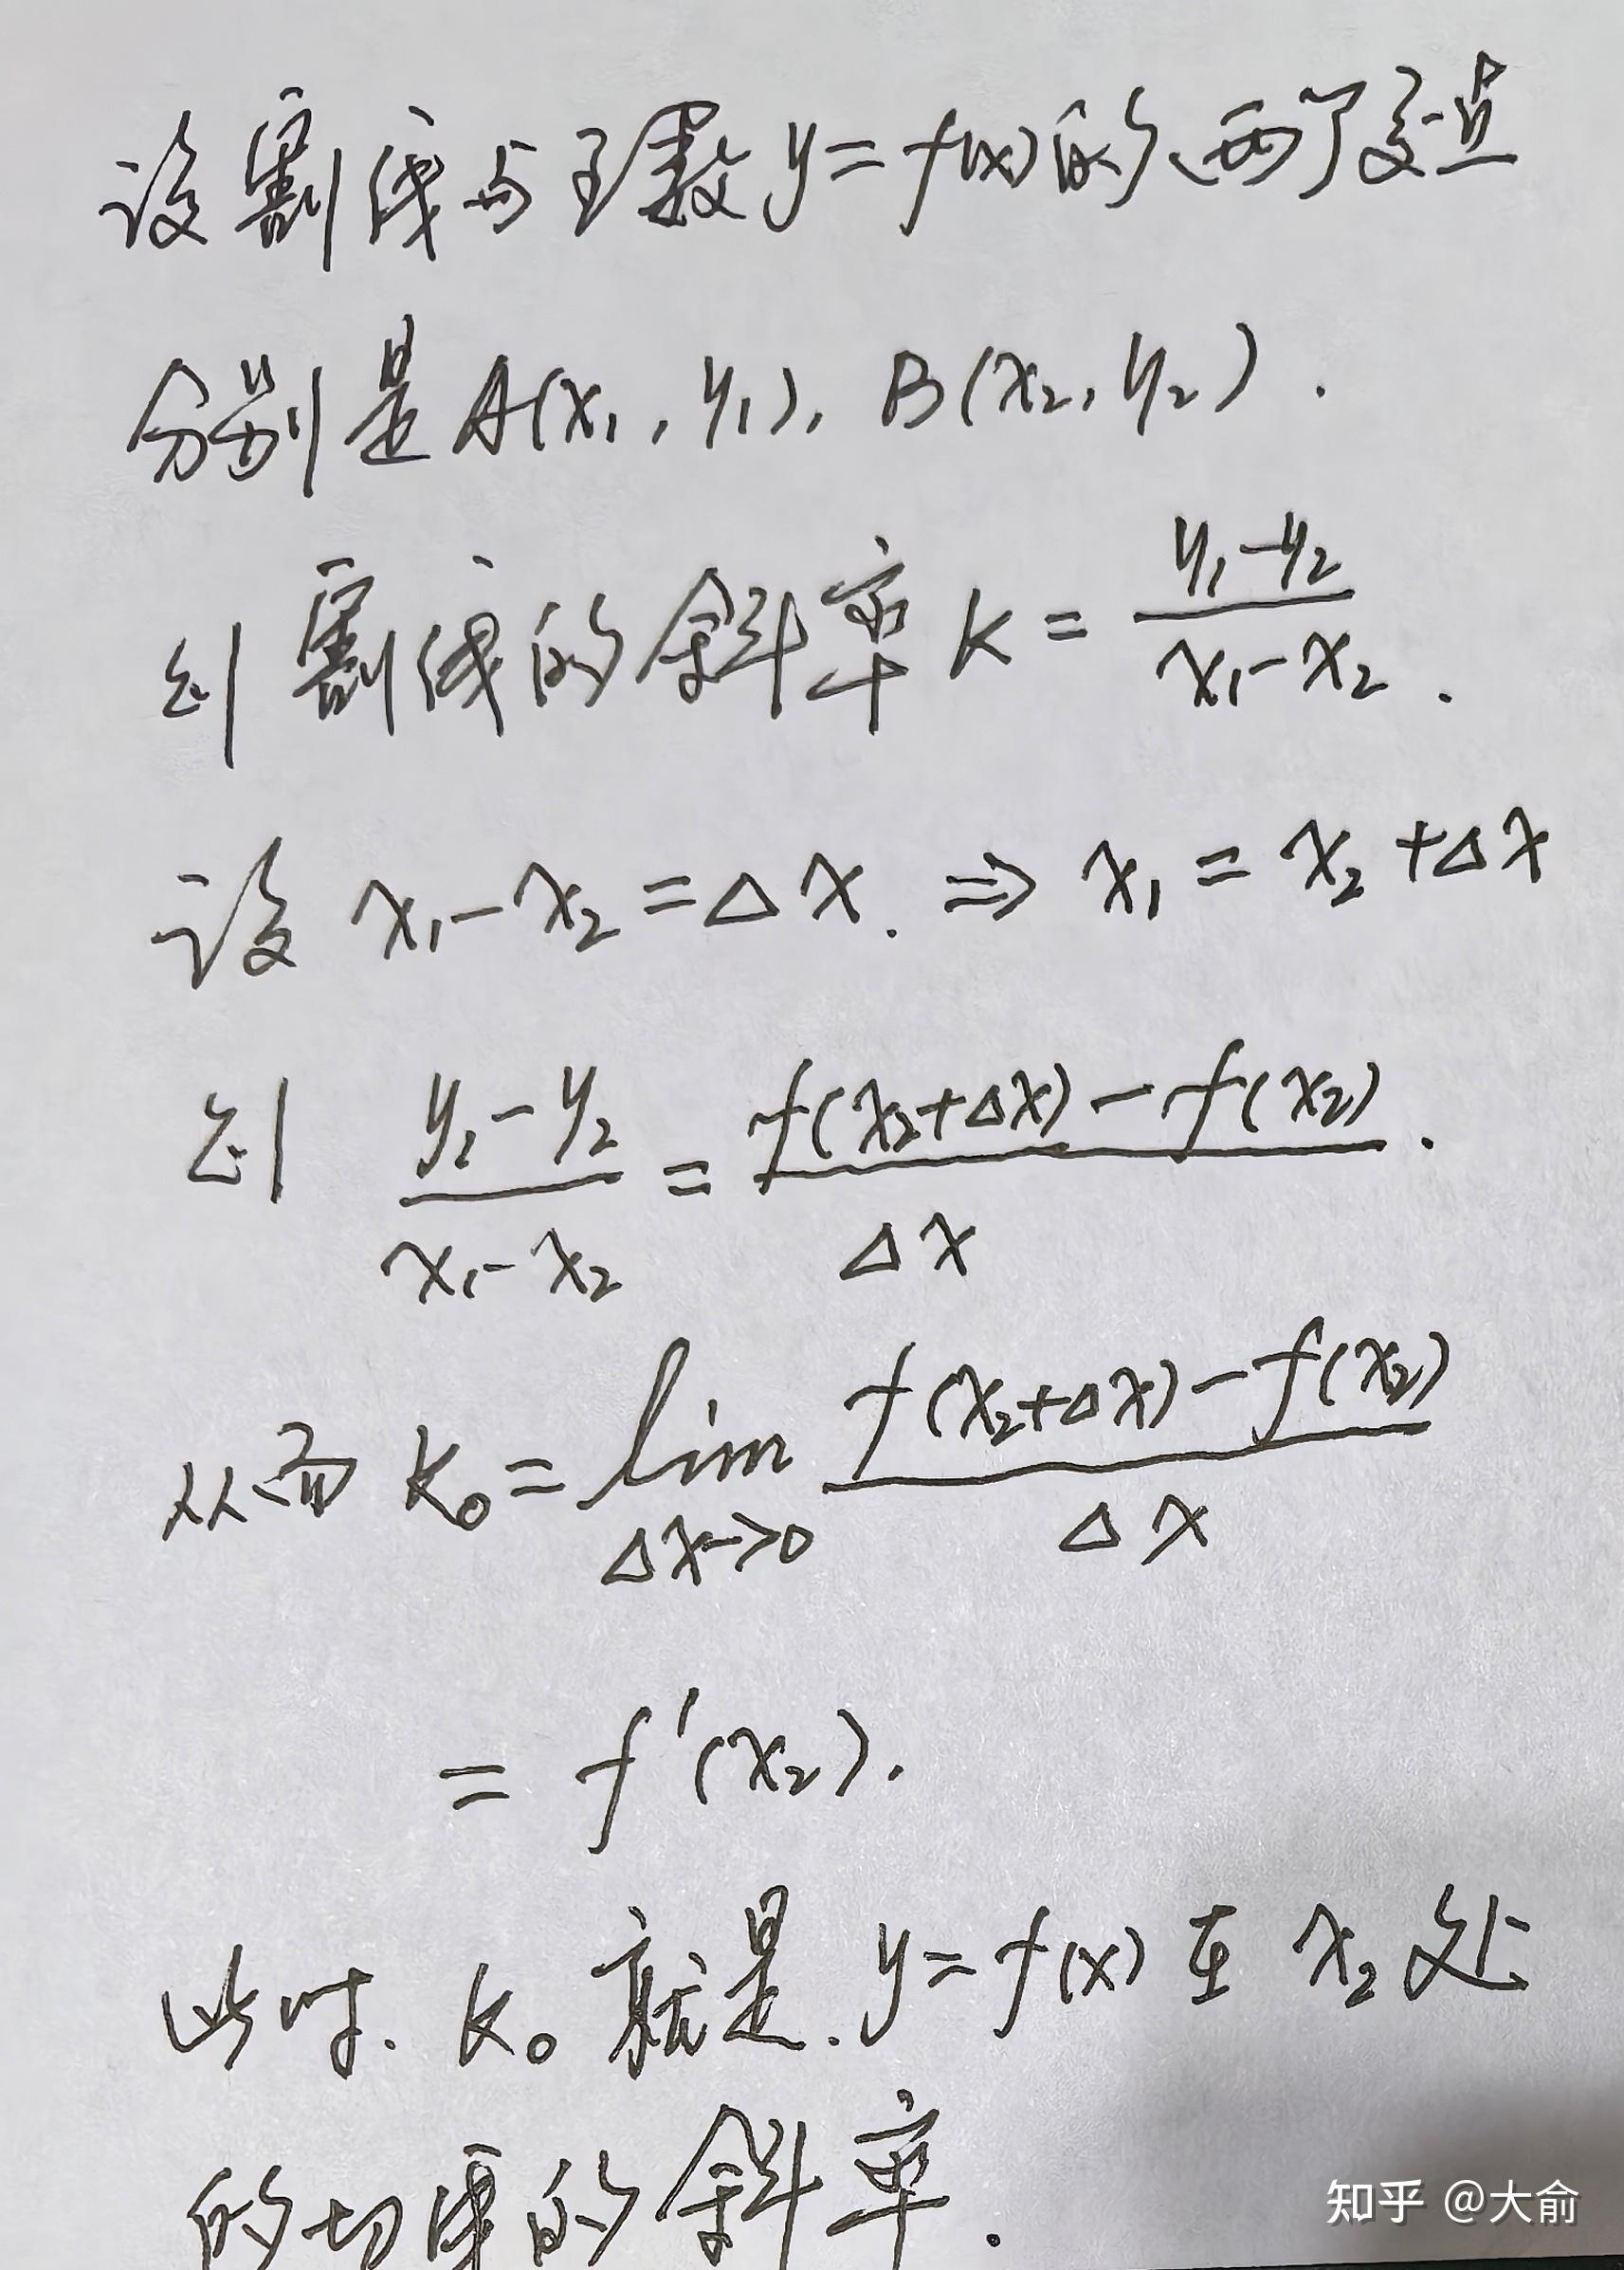 设割线与函数y=f(x)的两个交点
分别是A(x₁,y₁), B(x₂,y₂).
则割线的斜率K=\frac{y₁-y₂}{x₁-x₂}.
设 x₁-x₂=Δx. ⇒ x₁=x₂+Δx
则 \frac{y₁-y₂}{x₁-x₂}=\frac{f(x₂+Δx)-f(x₂)}{Δx}.
从而 K₀=\lim_{Δx→0}\frac{f(x₂+Δx)-f(x₂)}{Δx}
=f'(x₂).
此时. K₀就是.y=f(x)在x₂处
的切线的斜率.
知乎 @大俞